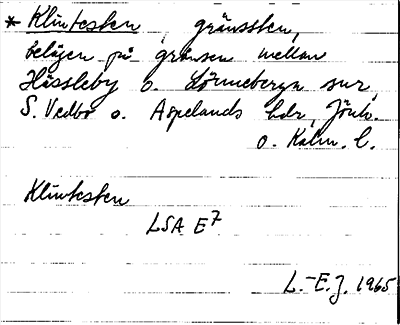 * Klintesten, gränssten,
belägen på gränsen mellan
Hässleby o. Lönneberga snr,
S. Vedbo o. Aspelands hdr, Jönk.
o. Kalm. l.
Klintesten
LSA E7
L.-E.J. 1965